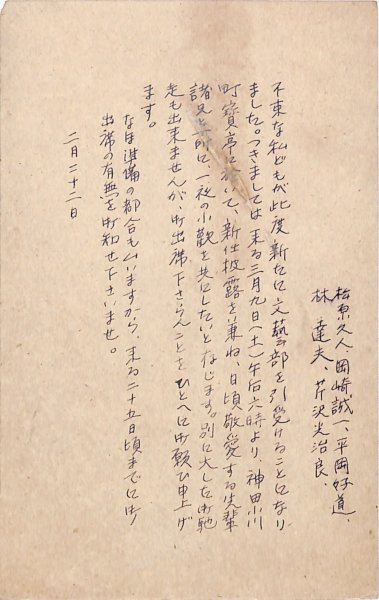 松原久人、岡崎誠一、平岡好道、
林 達夫、芹沢光治良、
不束な私どもが此度新たに文藝部を引受けることになり
ました。つきましては来る三月九日(土)午后六時より、神田小川
町寳亭に於いて、新任披露を兼ね、日頃敬愛する先輩
諸兄と一夜の小歡を共にしたいと存じます。別に大した御馳
走も出来ませんが、御出席下さらんことをひとへに御願ひ申上げ
ます。
なほ準備の都合もムいますから、来る二十五日頃までに御
出席の有無を御知せ下さいませ。
二月二十二日